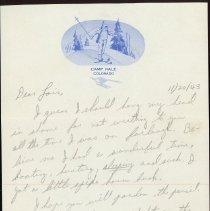 CAMP HALE
COLORADO
11/20/43
Dear Lois,
I guess I should hang my head
in shame for not writing to you
all the time I was on furlough. Be-
lieve me I had a wonderful time,
boating, hunting, sleeping and such. I
got a little
I hope you will pardon the pencil,